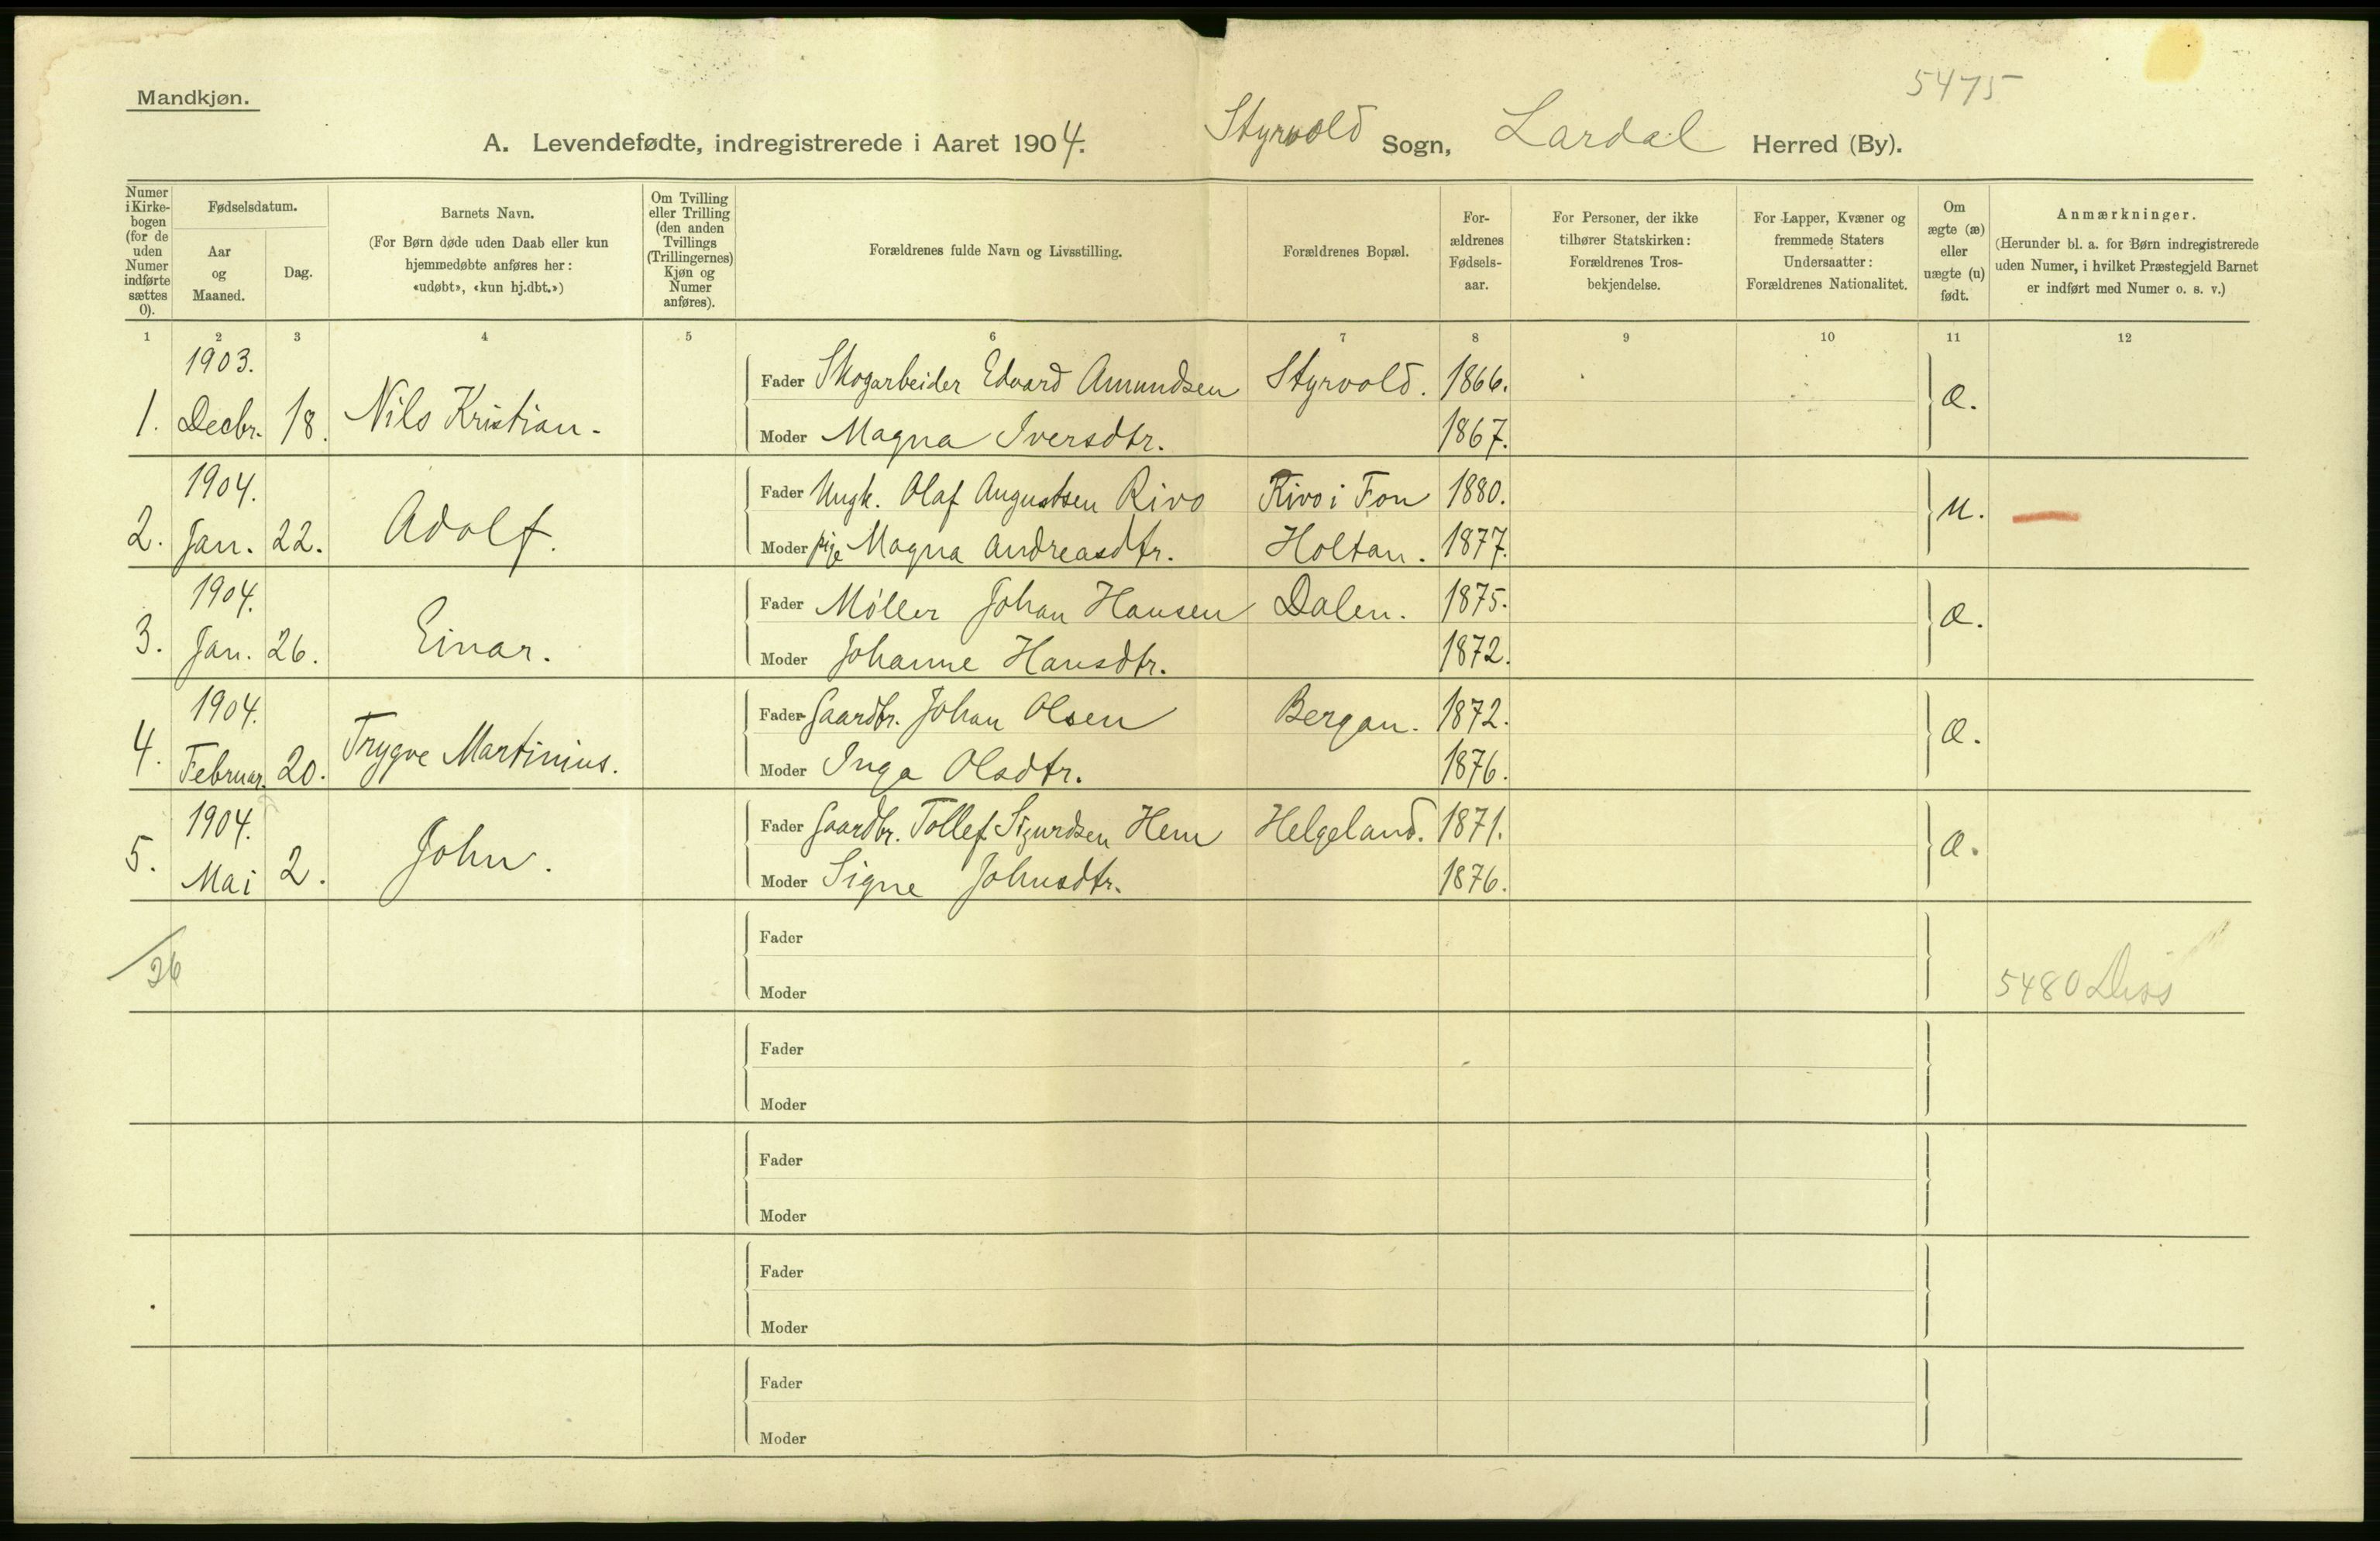 5475
Mandkjøn.
A. Levendefødte, indregistrerede i Aaret 1904. Styrvold Sogn, Lardal Herred (By).
Numer i Kirke-bogen (for de uden Numer indførte sættes 0).
Fødselsdatum.
Aar og Maaned.
Dag.
Barnets Navn.
(For Børn døde uden Daab eller kun hjemmedøbte anføres her: «udøbt», «kun hj.dbt.»)
Om Tvilling eller Trilling (den anden Tvillings (Trillingernes) Kjøn og Numer anføres).
Forældrenes fulde Navn og Livsstilling.
Forældrenes Bopæl.
For-ældrenes Fødsels-aar.
For Personer, der ikke tilhører Statskirken: Forældrenes Tros-bekjendelse.
For Lapper, Kvæner og fremmede Staters Undersaatter: Forældrenes Nationalitet.
Om ægte (æ) eller uægte (u) født.
Anmærkninger.
(Herunder bl. a. for Børn indregistrerede uden Numer, i hvilket Præstegjeld Barnet er indført med Numer o. s. v.)
1 2 3 4 5 6 7 8 9 10 11 12
1903.
Fader Skogarbeider Edvard Amundsen Styrvold. 1866.
1. Decbr. 18. Nils Kristian. æ.
Moder Magna Iversdtr. 1867.
1904.
Fader Ungk. Olaf Augustsen Rivo Rivo i Fon 1880.
2. Jan. 22. Adolf. u.
Moder pige Magna Andreasdtr. Holtan. 1877.
1904.
Fader Møller Johan Hansen Dalen. 1875.
3. Jan. 26. Einar. æ.
Moder Johanne Hansdtr. 1872.
1904.
Fader Gaardbr. Johan Olsen Bergan. 1872.
4. Februar. 20. Trygve Martinius. æ.
Moder Inga Olsdtr. 1876.
1904.
Fader Gaardbr. Tollef Sigurdsen Hem Helgeland. 1871.
5. Mai 2. John. æ.
Moder Signe Johnsdtr. 1876.
Fader
26
Moder
5480
Fader
Moder
Fader
Moder
Fader
Moder
Fader
Moder